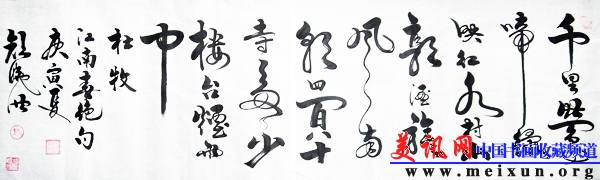 千里鶯
啼綠
映紅水村山
郭酒旗
風南
朝四百八十
寺多少
樓台煙雨
中
杜牧
江南春絕句
庚寅夏
美讯网 中国书画收藏频道
www.meixun.org